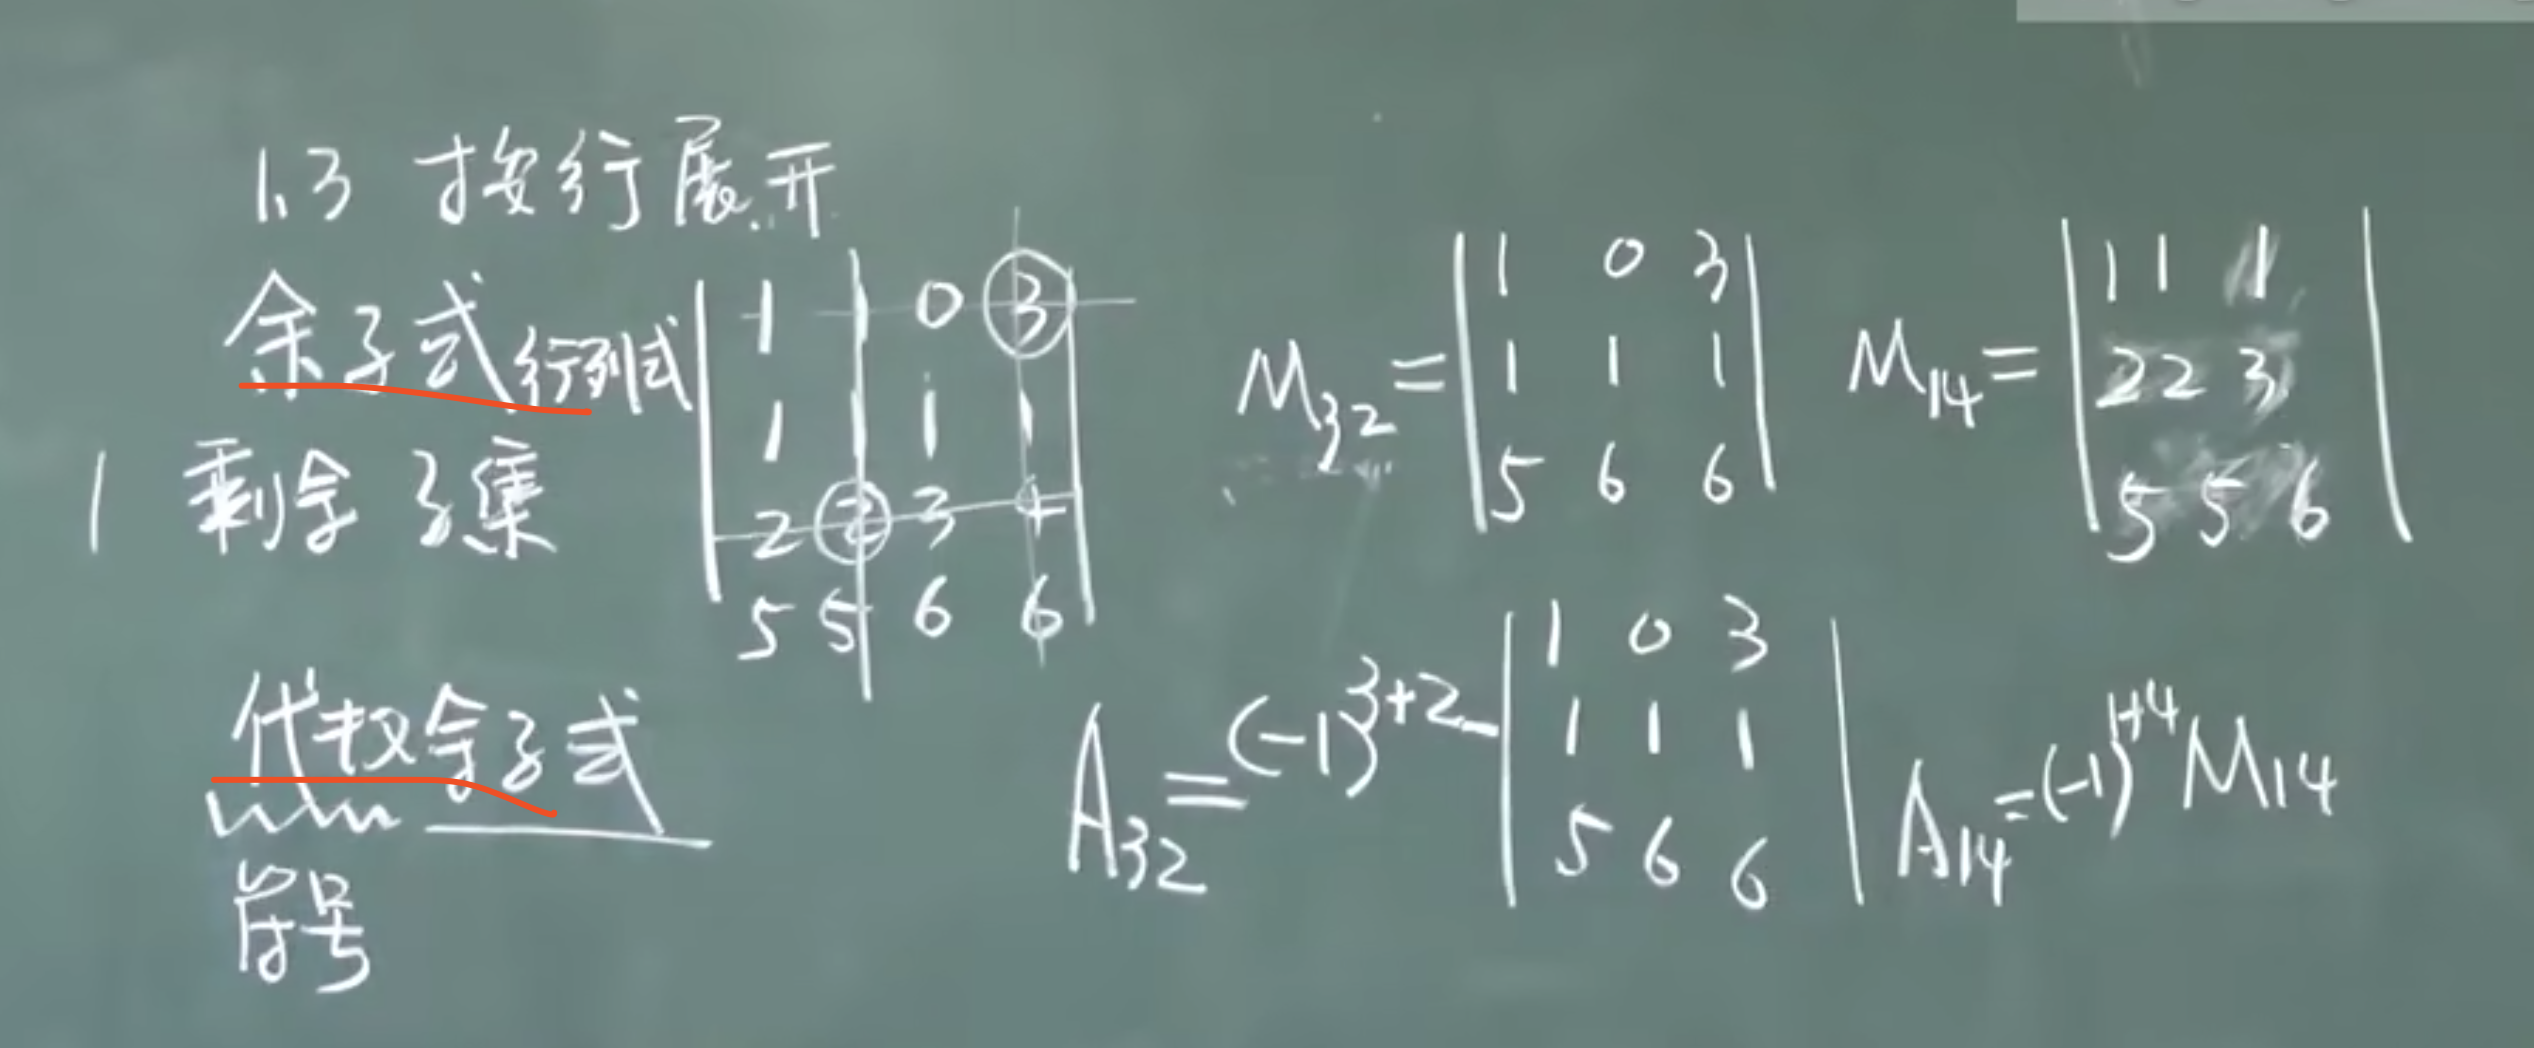 1.3 按行展开
余子式 行列式
| 1 1 0 3 |
| 1 1 1 1 |
| 2 2 3 4 |
| 5 5 6 6 |
1 剩余子集
M32 = | 1 0 3 |
| 1 1 1 |
| 5 6 6 |
M14 = | 1 1 1 |
| 2 2 3 |
| 5 5 6 |
代数余子式
符号
A32 = (-1)^3+2 | 1 0 3 |
| 1 1 1 |
| 5 6 6 |
A14 = (-1)^1+4 M14